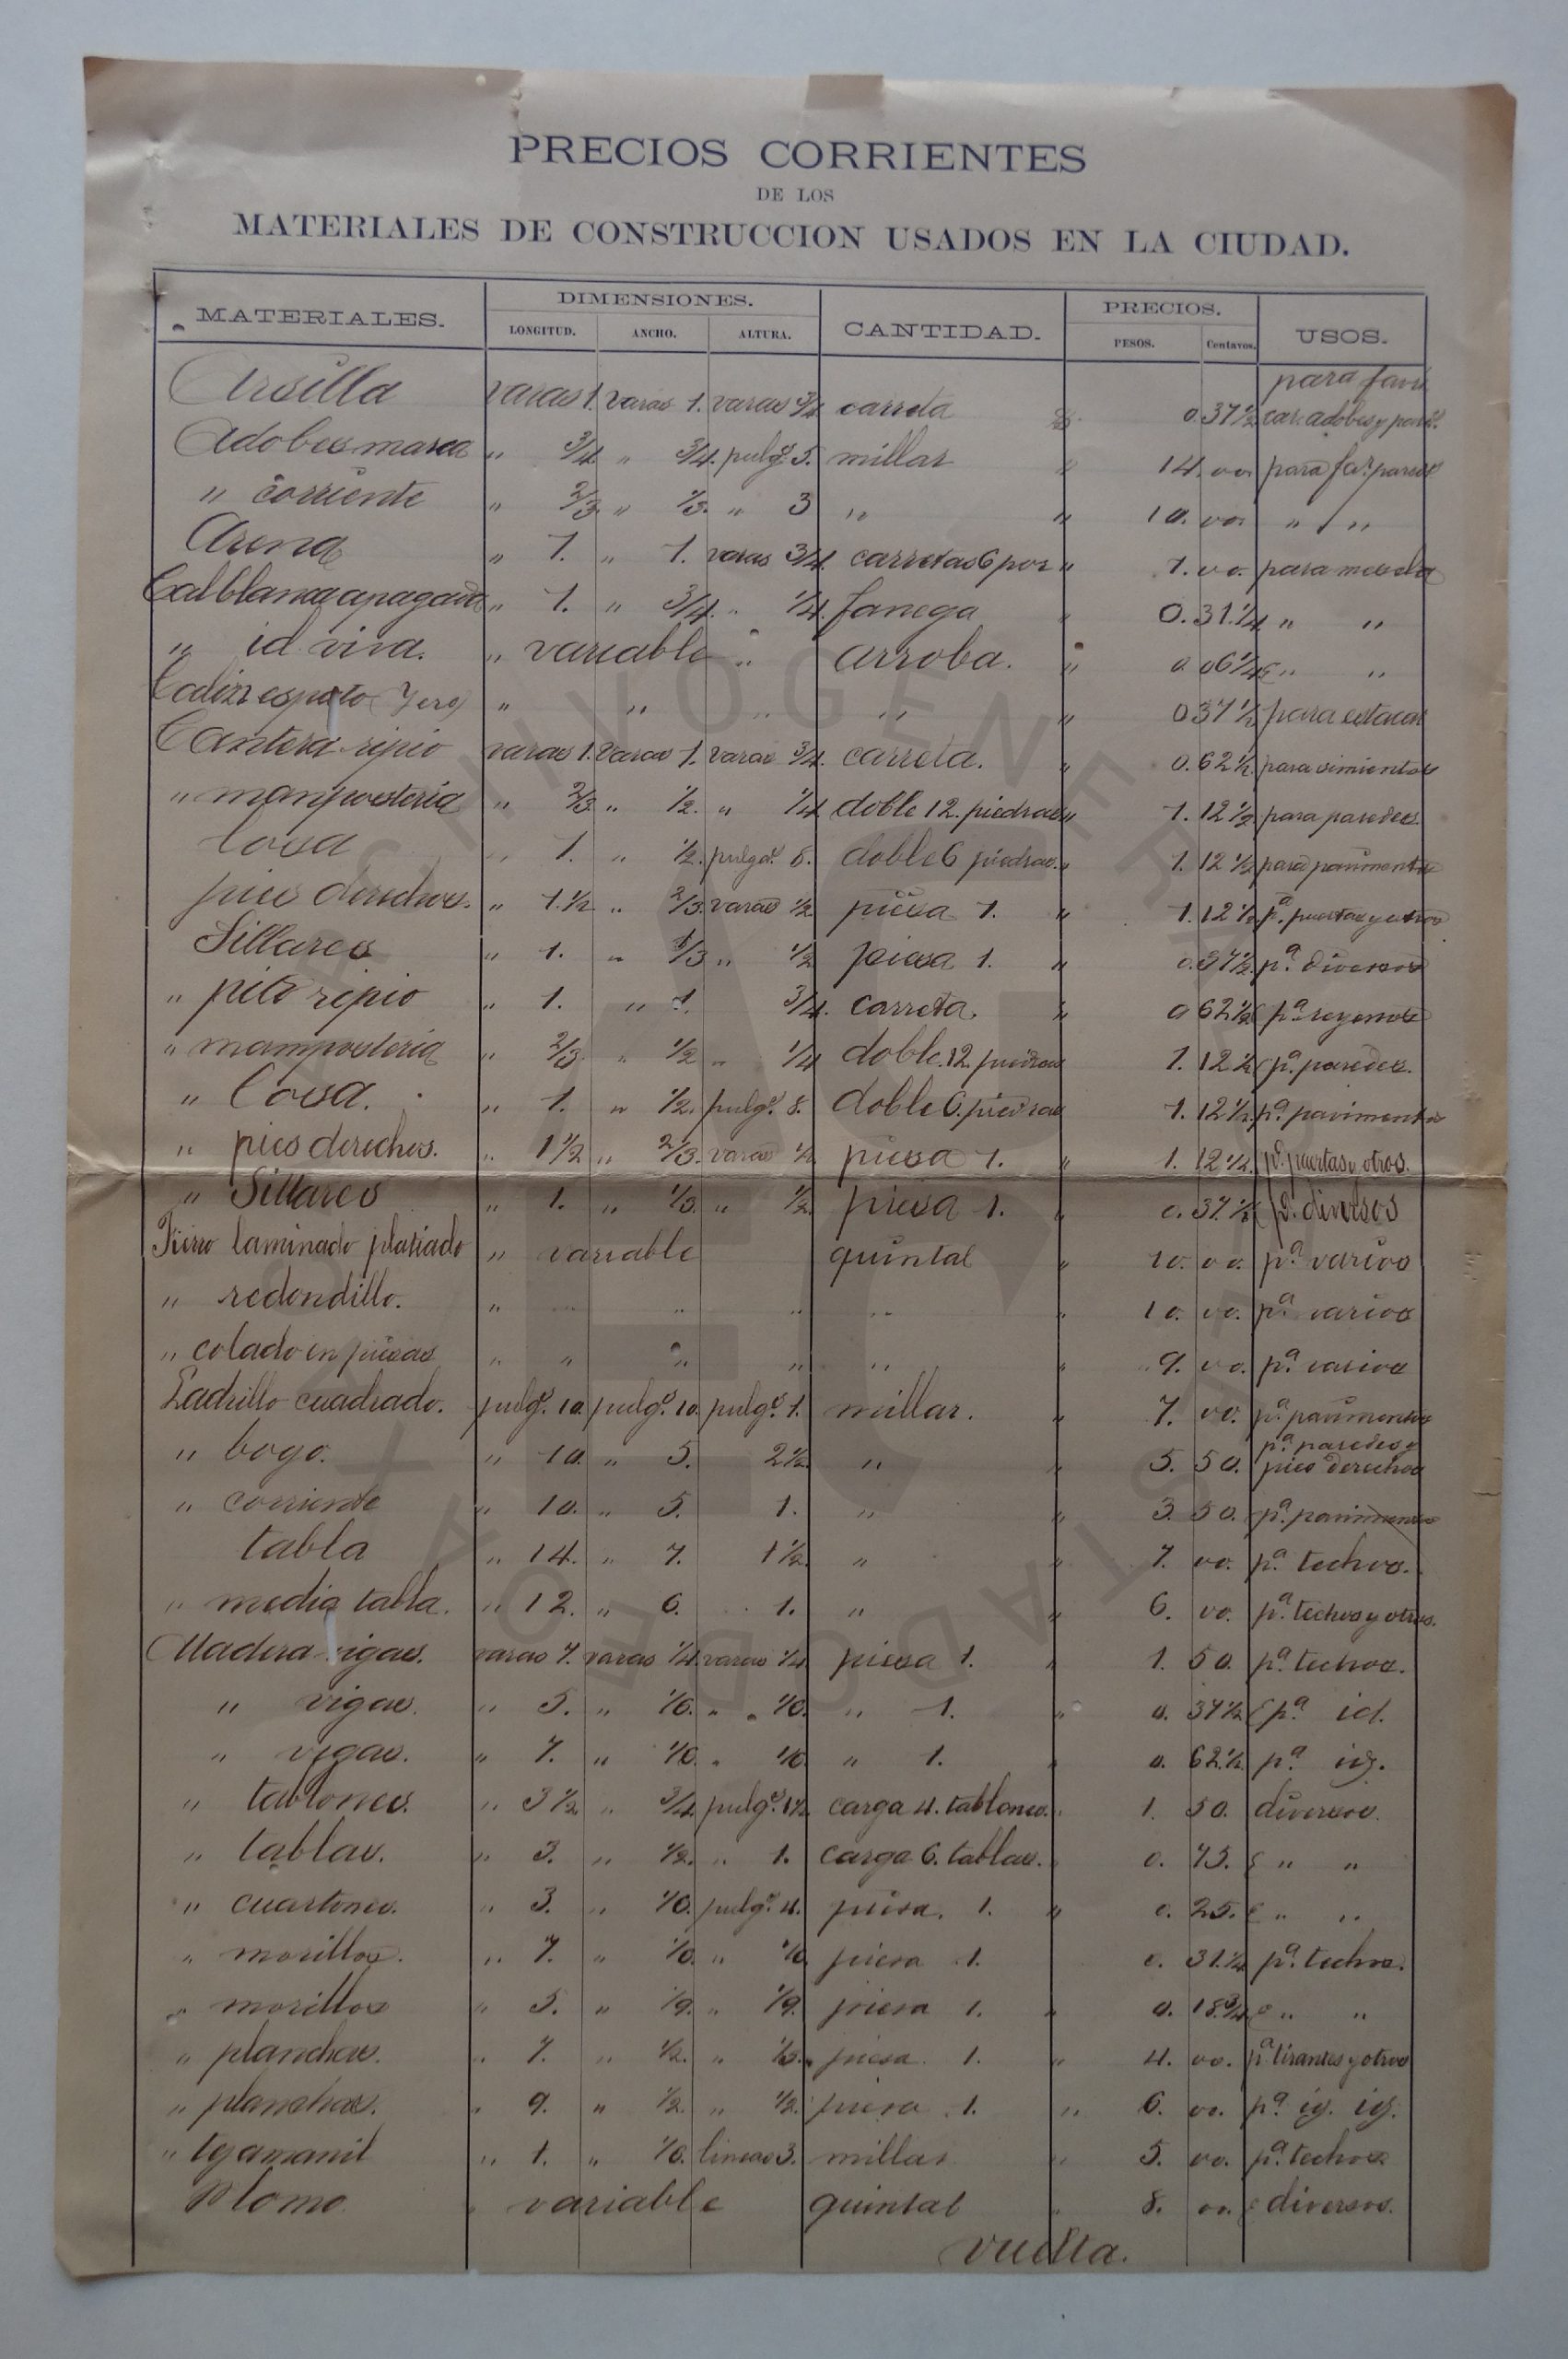 PRECIOS CORRIENTES
DE LOS
MATERIALES DE CONSTRUCCION USADOS EN LA CIUDAD.
MATERIALES. DIMENSIONES. CANTIDAD. PRECIOS. USOS.
LONGITUD. ANCHO. ALTURA. PESOS. Centavos.
Arsilla varas 1. varas 1. varas 3/4 carreta $ 0. 37 1/2 para favri car. adobes y pard.
Adobes marca " 3/4 " 3/4. pulgs. 5. millar " 14. oo. para far. pared
" corriente " 2/3 " 1/3. " 3 " " 10. oo. " "
Arena " 1. " 1. varas 3/4. carretas 6 por " 1. oo. para mescla
Cal blanca apagada " 1. " 3/4. " 1/4. fanega " 0. 31. 1/4 " "
" id viva. " variable " arroba. " 0. 06 1/4 " "
" " " " " 0 37 1/2 para
Cantera ripio varas 1. varas 1. varas 3/4. carreta. " 0. 62 1/2. para simientos
" manposteria " 2/3 " 1/2. " 1/4 doble 12. piedras " 1. 12 1/2 para paredes.
Losa " 1. " 1/2. pulgds. 8. doble 6 piedras. " 1. 12 1/2 para pavimentos
pies derechos. " 1. 1/2 " 2/3. varas 1/2 piesa 1. " 1. 12 1/2 pa. puertas y otros
Sillares " 1. " 1/3 " 1/2 piesa 1. " 0. 37 1/2. pa. diversos
" pito ripio " 1. " 1. 3/4. carreta. " 0 62 1/2 pa.
" mamposteria " 2/3. " 1/2 " 1/4 doble. 12. piedras 1. 12 1/2 pa. paredes.
" Losa. " 1. " 1/2. pulgs. 8. doble 6. piedras 1. 12 1/2. pa. pavimentos
" pies derechos. " 1 1/2 " 2/3. varas 1/2 piesa 1. " 1. 12 1/2. pa. puertas y otros.
" Sillares " 1. " 1/3. " 1/2. piesa 1. " 0. 37. 1/2 pa. diversos
Fierro laminado plasiado " variable quintal " 10. oo. pa. varios
" redondillo. " " " " " 10. oo. pa. varios
" colado en piesas " " " " " " 9. oo. pa. varios
Ladrillo cuadrado. pulgs. 10. pulgs. 10. pulgs. 1. millar. " 7. oo. pa. pavimentos
" bogo. " 10. " 5. 2 1/2. " " 5. 50. pa. paredes y pies derechos
" corriente " 10. " 5. 1. " " 3. 50. pa. pavimentos
tabla " 14. " 7. 1 1/2. " " 7. oo. pa. techos.
" media tabla. " 12. " 6. 1. " " 6. oo. pa. techos y otros.
Madera vigas. varas 7. varas 1/4. varas 1/4 piesa 1. " 1. 50. pa. techos.
" vigas. " 5. " 1/6. " 1/6. " 1. " 0. 37 1/2 pa. id.
" vigas. " 7. " 1/6. " 1/6 " 1. " 0. 62. 1/2. pa. id.
" tablones. " 3 1/2 " 3/4 pulgs. 1 1/2. carga 4. tablones. " 1. 50. diversos.
" tablas. " 3. " 1/2. " 1. carga 6. tablas. " 0. 75. " "
" cuartones. " 3. " 1/6. pulgs. 4. piesa. 1. " 0. 25. " "
" morillos. " 7. " 1/6. " 1/6 piesa 1. 0. 31. 1/4 pa. techos.
" morillos " 5. " 1/9. " 1/9. piesa 1. " 0. 18. 3/4 " "
" planchas. " 7. " 1/2. " 1/3. piesa. 1. " 4. oo. pa. tirantes y otros
" planchas. " 9. " " 1/2. " 1/2. piesa 1. " 6. oo. pa. id. id.
" tejamanil " 1. " 1/6. lineas 3. millar " 5. oo. pa. techos
Plomo. " variable quintal " 8. oo. diversos.
vuelta.